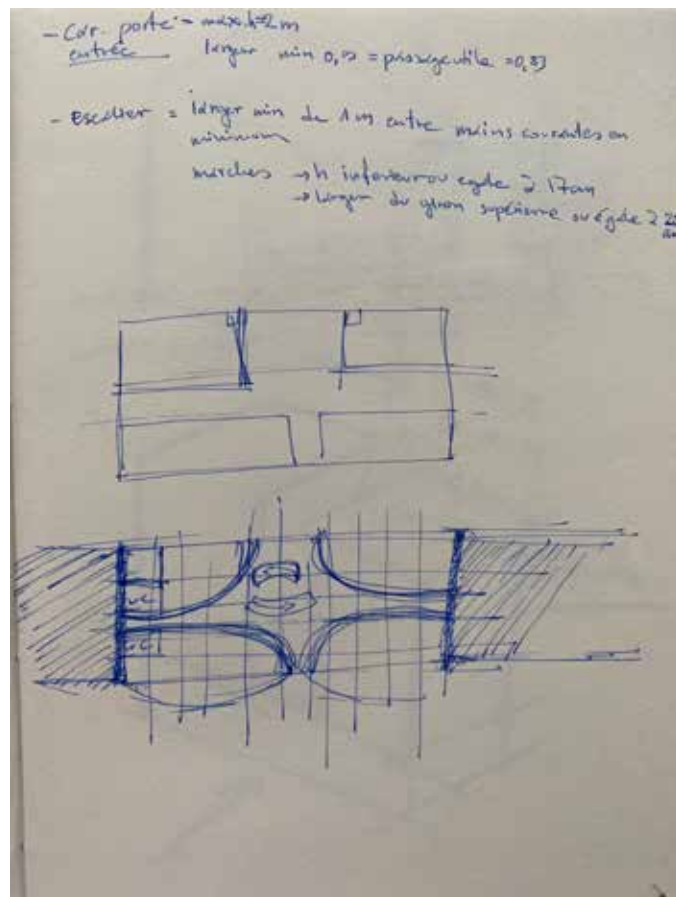 - Car. porte = max. h = 2m
entrée largeur min 0,90 = passage utile = 0,83
- Escalier = largeur min de 1m entre mains courantes en
minimum
marches → h inférieur ou égale à 17cm
→ largeur du giron supérieure ou égale à
WC
WC